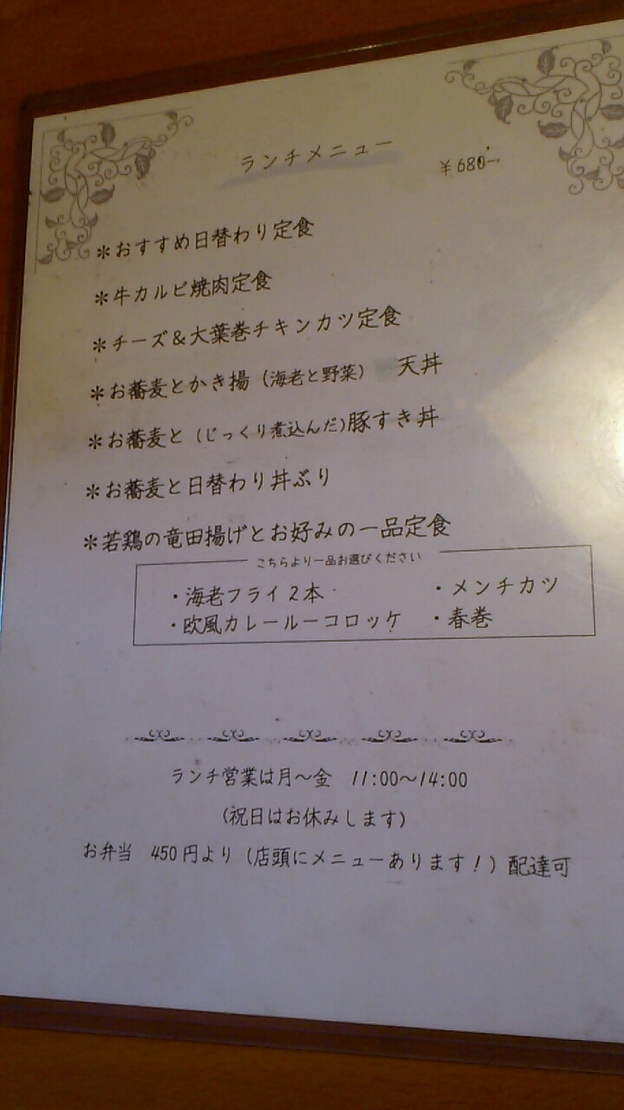 ランチメニュー ¥680-
＊おすすめ日替わり定食
＊牛カルビ焼肉定食
＊チーズ＆大葉巻チキンカツ定食
＊お蕎麦とかき揚（海老と野菜） 天丼
＊お蕎麦と（じっくり煮込んだ）豚すき丼
＊お蕎麦と日替わり丼ぶり
＊若鶏の竜田揚げとお好みの一品定食
こちらより一品お選びください
・海老フライ２本 ・メンチカツ
・欧風カレールーコロッケ ・春巻
ランチ営業は月～金 11:00～14:00
（祝日はお休みします）
お弁当 450円より（店頭にメニューあります！）配達可